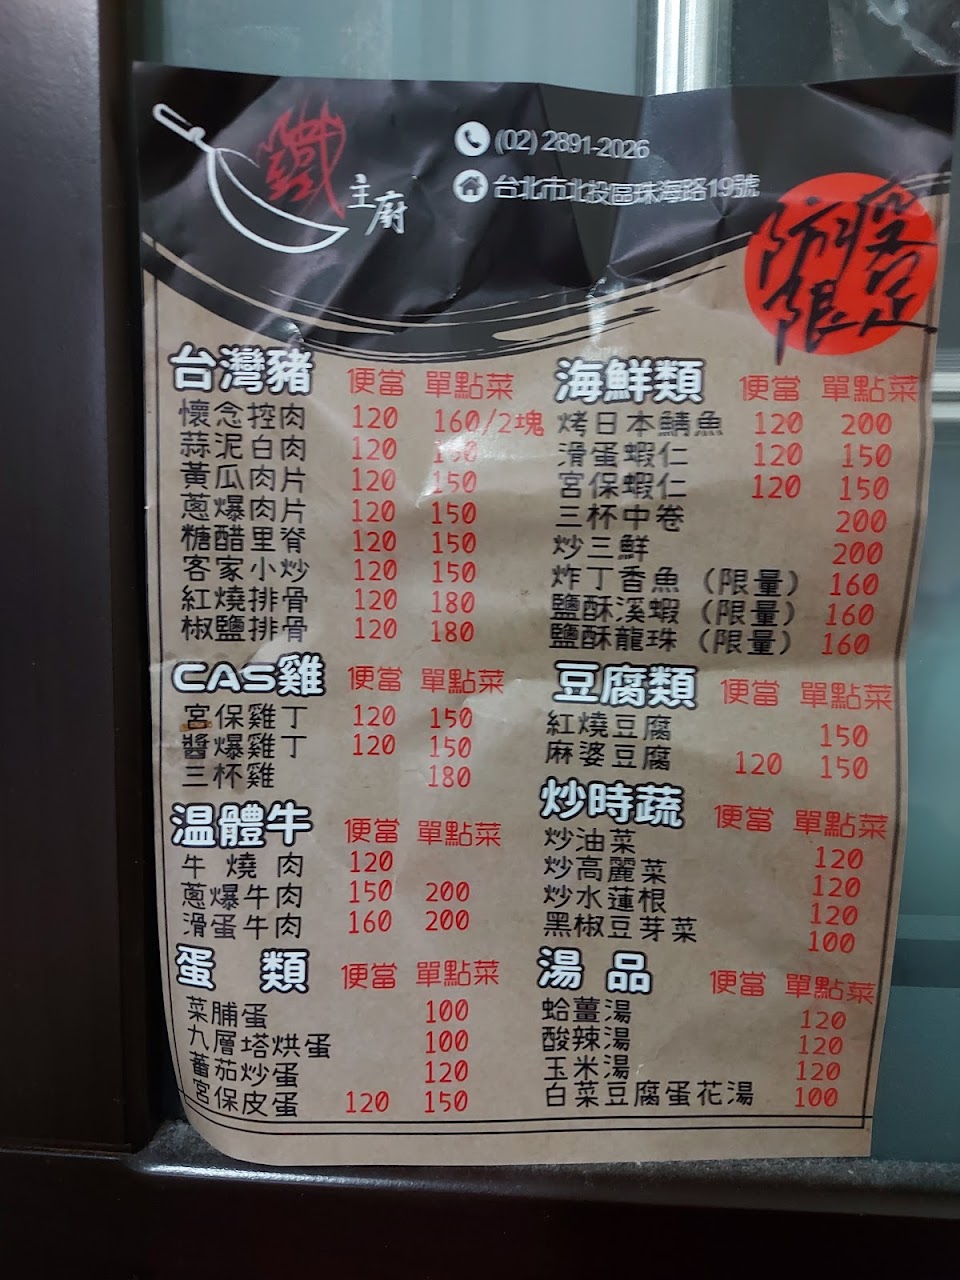 鐵
主廚
(02) 2891-2026
台北市北投區珠海路19號
防疫
限定
台灣豬 便當 單點菜
懷念控肉 120 160/2塊
蒜泥白肉 120
黃瓜肉片 120 150
蔥爆肉片 120 150
糖醋里脊 120 150
客家小炒 120 150
紅燒排骨 120 180
椒鹽排骨 120 180
CAS雞 便當 單點菜
宮保雞丁 120 150
醬爆雞丁 120 150
三杯雞 180
温體牛 便當 單點菜
牛燒肉 120
蔥爆牛肉 150 200
滑蛋牛肉 160 200
蛋類 便當 單點菜
菜脯蛋 100
九層塔烘蛋 100
蕃茄炒蛋 120
宮保皮蛋 120 150
海鮮類 便當 單點菜
烤日本鯖魚 120 200
滑蛋蝦仁 120 150
宮保蝦仁 120 150
三杯中卷 200
炒三鮮 200
炸丁香魚（限量） 160
鹽酥溪蝦（限量） 160
鹽酥龍珠（限量） 160
豆腐類 便當 單點菜
紅燒豆腐 150
麻婆豆腐 120 150
炒時蔬 便當 單點菜
炒油菜 120
炒高麗菜 120
炒水蓮根 120
黑椒豆芽菜 100
湯品 便當 單點菜
蛤薑湯 120
酸辣湯 120
玉米湯 120
白菜豆腐蛋花湯 100